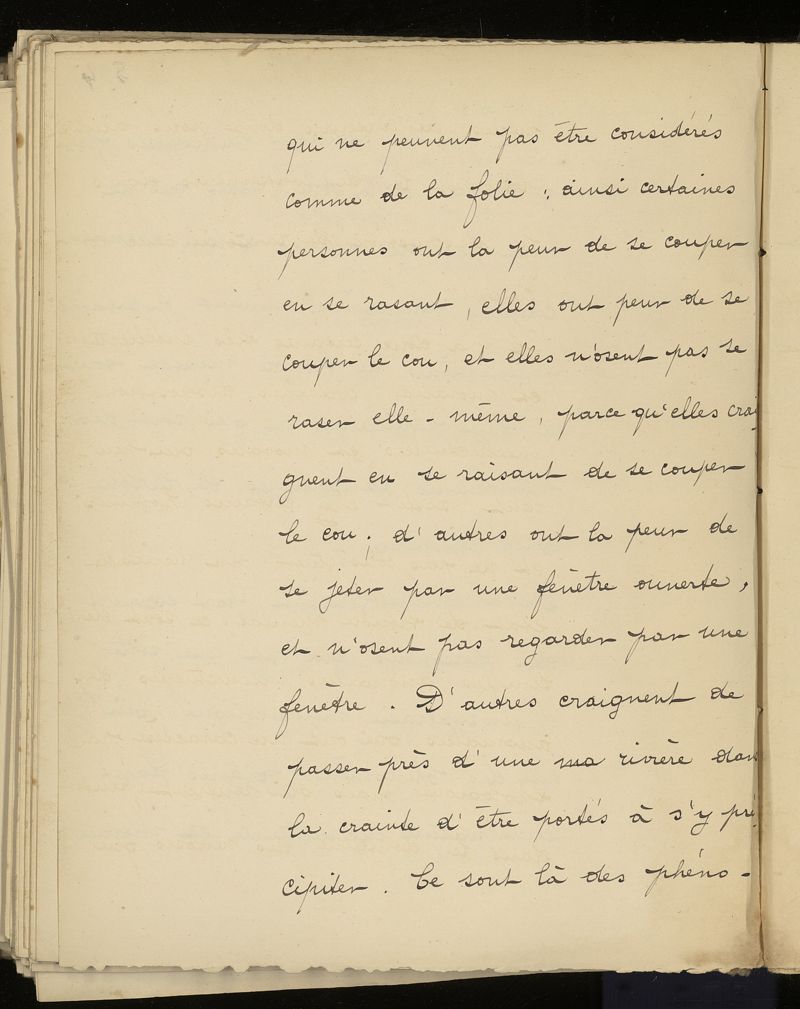 qui ne peuvent pas être considérés
comme de la folie ; ainsi certaines
personnes ont la peur de se couper
en se rasant, elles ont peur de se
couper le cou, et elles n'osent pas se
raser elle-même, parce qu'elles crai
gnent en se raisant de se couper
le cou ; d'autres ont la peur de
se jeter par une fenêtre ouverte,
et n'osent pas regarder par une
fenêtre. D'autres craignent de
passer près d'une ma rivière dans
la crainte d'être portés à s'y pré
cipiter. Ce sont là des phéno-